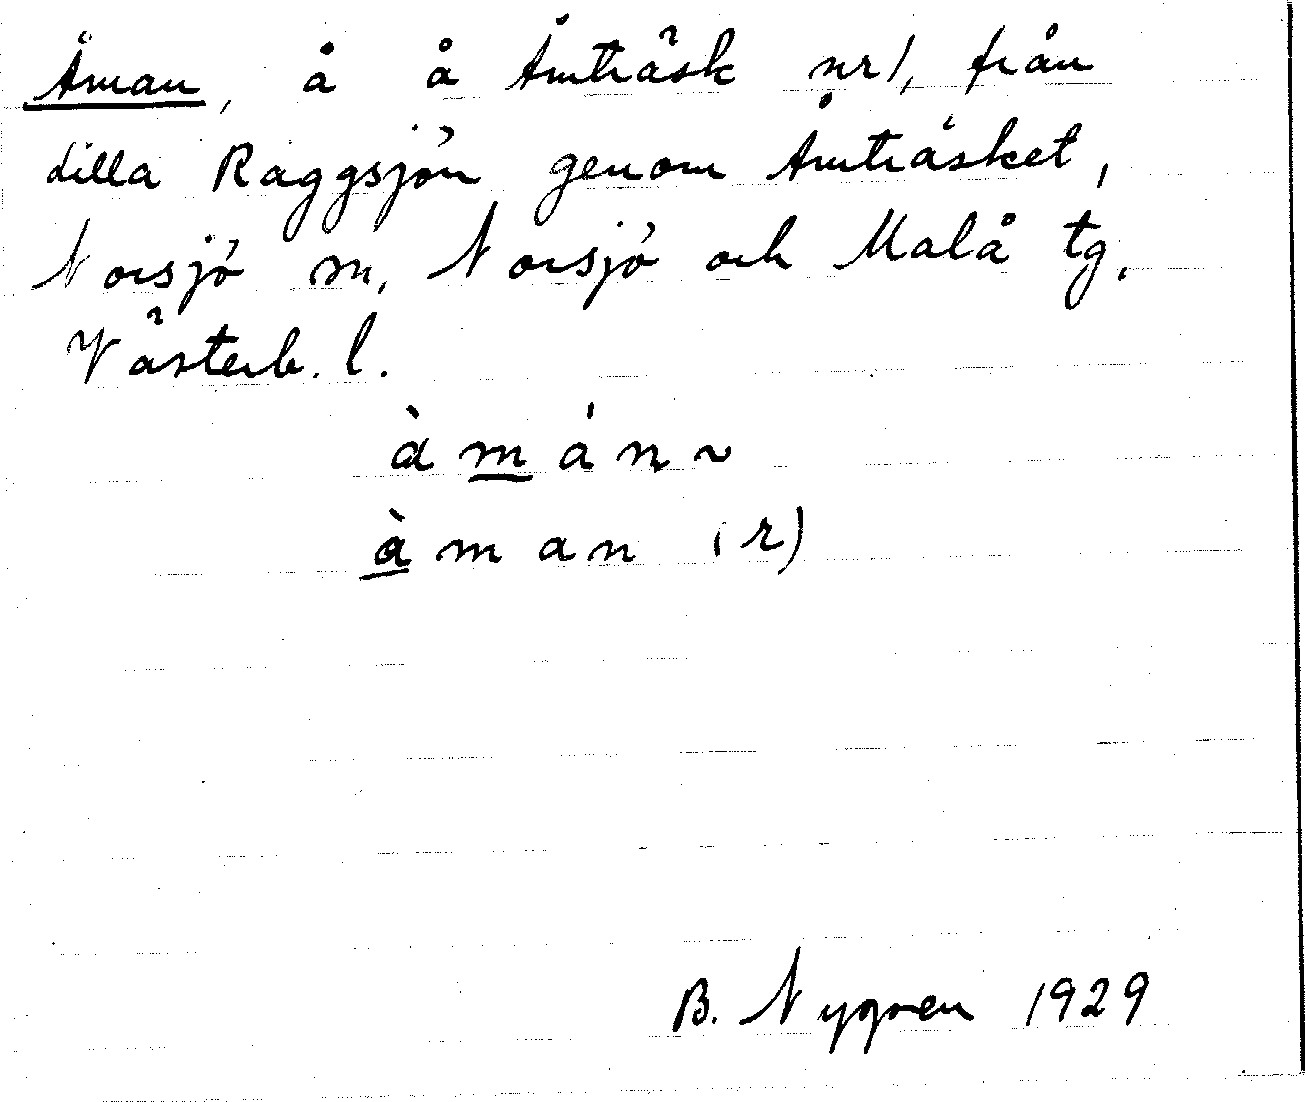 Åman, å å Åmträsk nr 1, från
Lilla Raggsjön genom Åmträsket,
Norsjö sn, Norsjö och Malå tg,
Västerb. l.
àmán~
àman (r)
B. Nygren 1929